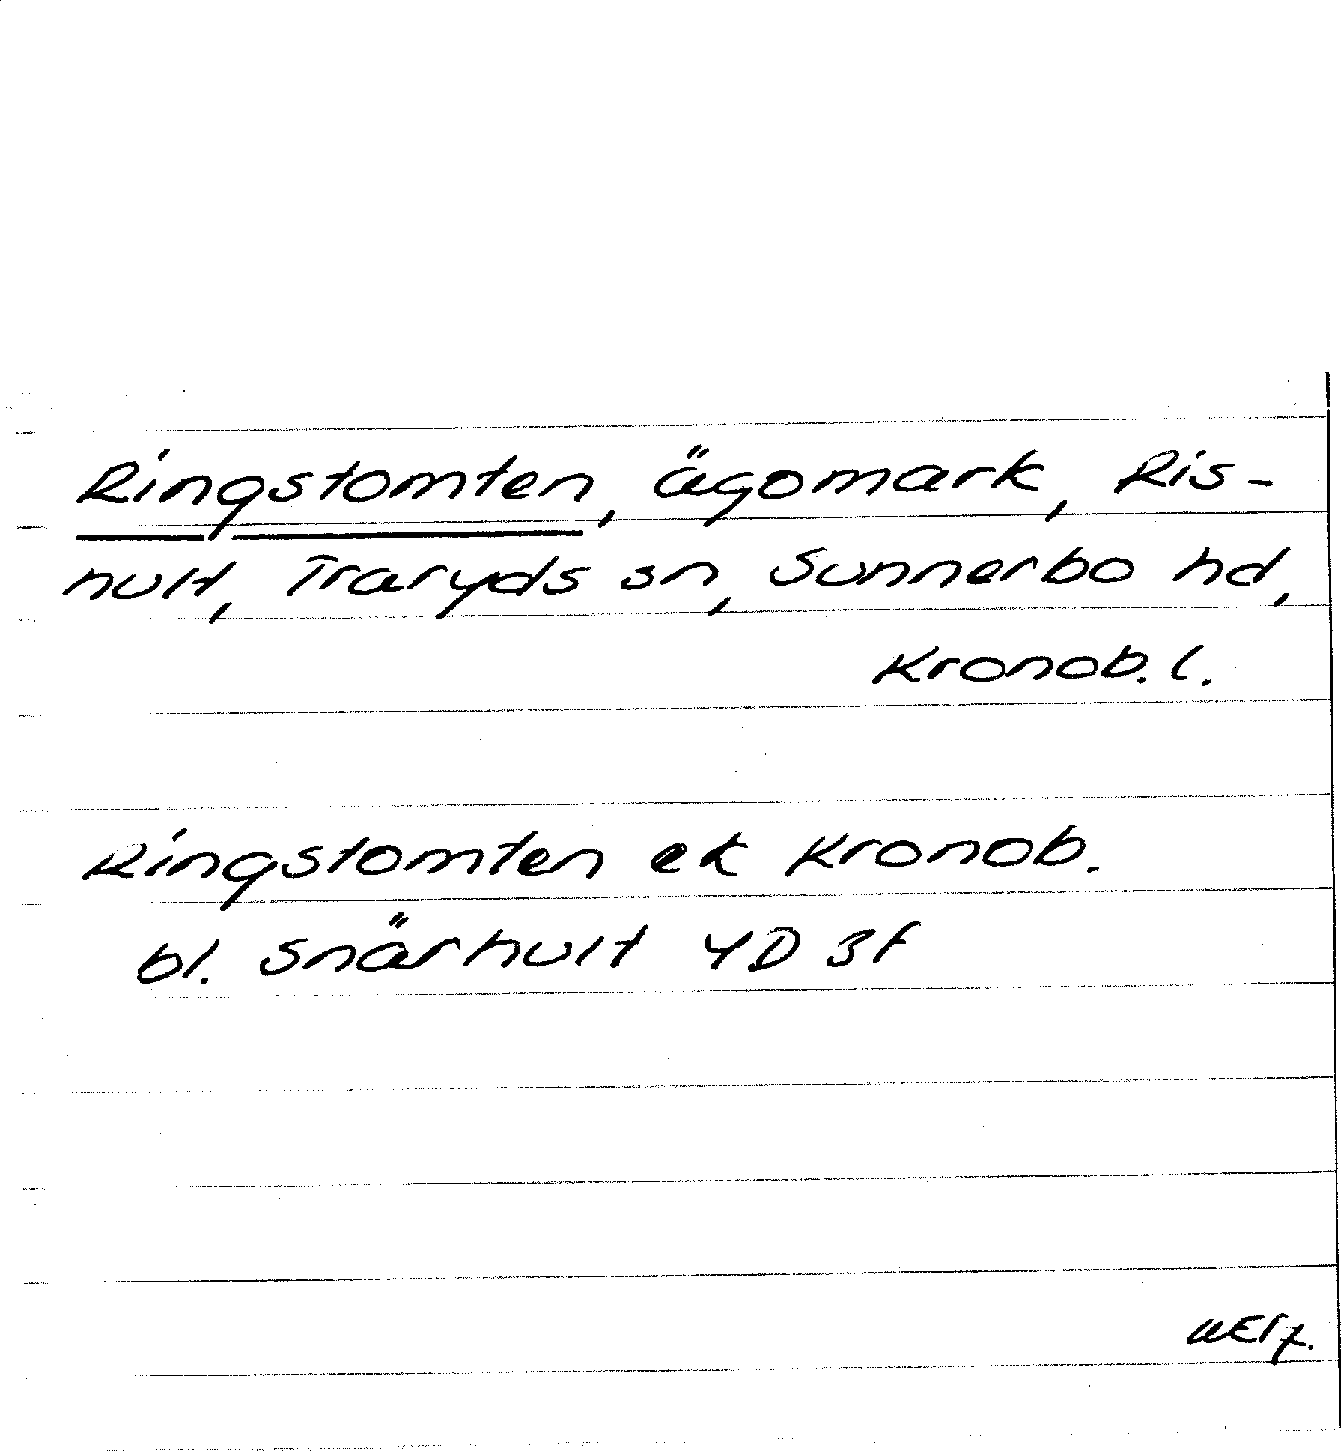 Ringstomten, ägomark, Ris-
hult, Traryds sn, Sunnerbo hd,
Kronob. l.
Ringstomten ek Kronob.
bl. Snärhult 4D 3f